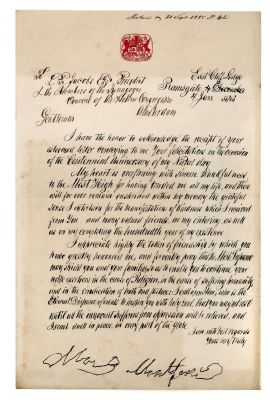 East Cliff Lodge
Ramsgate 4 December
S. P. Jacobs Esqr. President
& the Members of the Synagogue
Council of the Hebrew Congregation
Rotterdam
Gentlemen
I have the honor to acknowledge the receipt of your
esteemed letter conveying to me Your felicitations on the occasion
of the Centennial Anniversary of my Natal day.
My heart is overflowing with sincere thankfulness
to the Most High for having spared me all my life, and there
will for ever remain enshrined within my memory the grateful
sense I entertain for the manifestation of kindness which I received
from You and many valued friends, on my entering as well
as on my completing the hundredth year of my existence
I appreciate highly the letter of friendship by which you
have greatly honored me, and fervently pray that the Most Supreme
may shield you and Your families so as to enable you to continue your
noble exertions in the cause of Religion, in the cause of suffering humanity
and in the vindication of truth and justice
Eternal Dispenser of events to inspire you with holy zeal, that you may not rest
until all the innocent sufferers from oppression and be relieved, and
Israel dwell in peace in every part of the globe
I am with kind regards
Yours very truly
Moses Montefiore